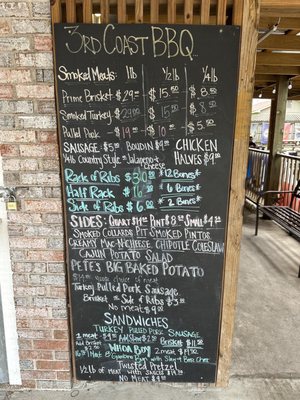 3RD COAST BBQ
Smoked Meats: 1lb 1/2lb 1/4lb
Prime Brisket $29 $15. $8.
Smoked Turkey $24 $8.
Pulled Pork $19 $10 $5.
SAUSAGE $5 BOUDIN $9 CHICKEN
Yolls Country Style Jalapeno & Cheese HALVES $9
Rack of Ribs $30 *12 Bones*
Half Rack $16 6 Bones*
Side of Ribs $6 *2 Bones*
SIDES: QUART $14 PINT $8 SMALL $4
SMOKED COLLARDS PIT SMOKED PINTOS
CREAMY MAC-N-CHEESE CHIPOTLE COLESLAW
CAJUN POTATO SALAD
PETE'S BIG BAKED POTATO
choice of meat
Turkey Pulled Pork Sausage
Brisket Side of Ribs $3
NO MEAT $9
SANDWICHES
TURKEY PULLED PORK SAUSAGE
1 meat Add Slaw Brisket $11
Add Brisket WHOA BOY 2 meat
Twisted Pretzel
1/2 lb of meat with sauces
NO MEAT $9